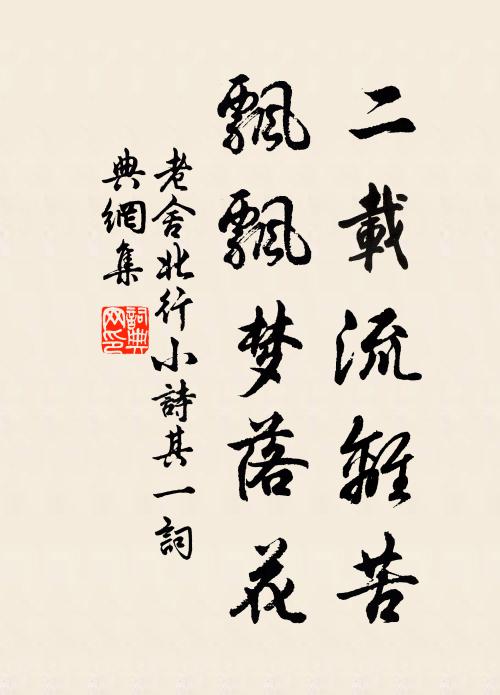 二載流離苦
飄飄梦落花
老舍北行小詩其一詞
典網集
詞典
网印